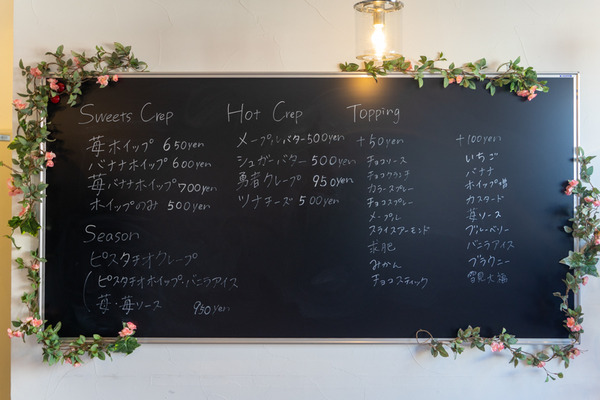 Sweets Crep
苺ホイップ 650yen
バナナホイップ 600yen
苺バナナホイップ 700yen
ホイップのみ 500yen
Season
ピスタチオクレープ
(ピスタチオホイップ・バニラアイス
苺・苺ソース 950yen
Hot Crep
メープルバター 500yen
シュガーバター 500yen
勇者クレープ 950yen
ツナチーズ 500yen
Topping
+50yen
チョコソース
チョコクランチ
カラースプレー
チョコスプレー
メープル
スライスアーモンド
求肥
みかん
チョコスティック
+100yen
いちご
バナナ
ホイップ増
カスタード
苺ソース
ブルーベリー
バニラアイス
ブラウニー
雪見大福